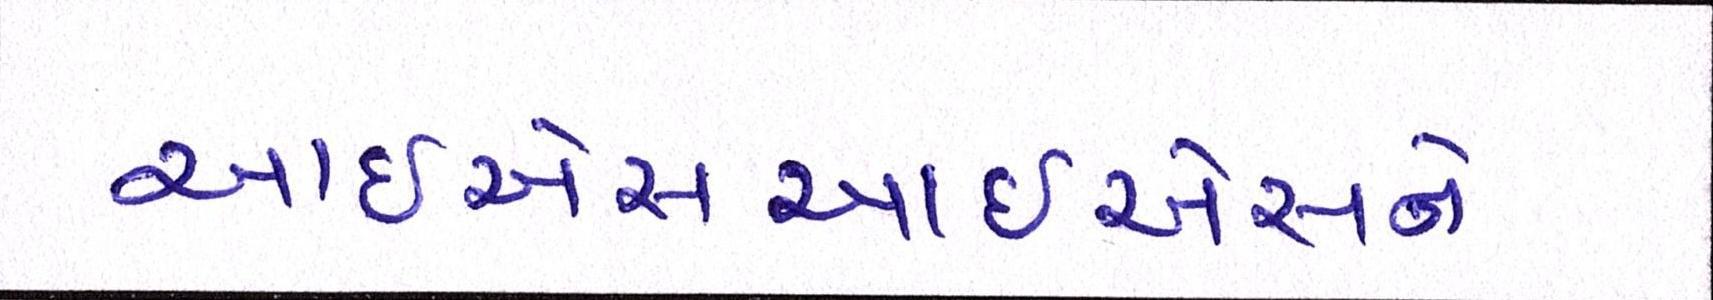 આઈએસઆઈએસને